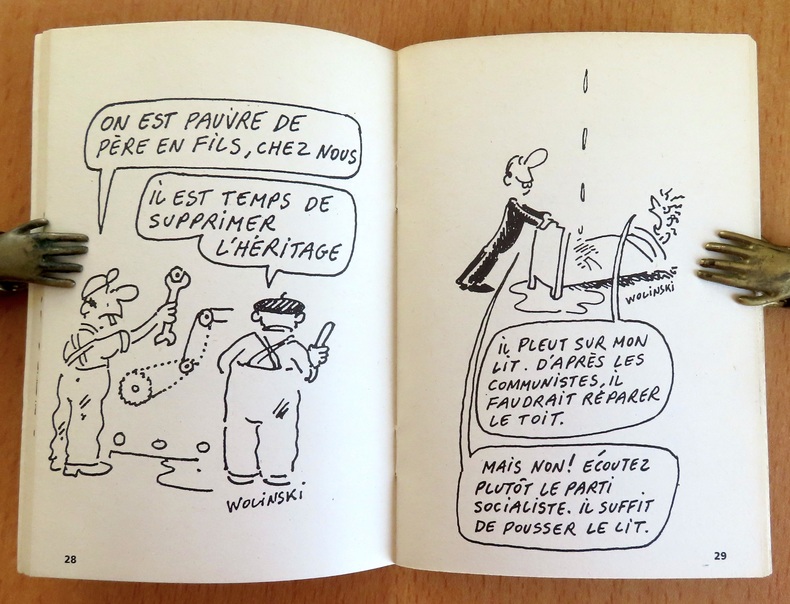 ON EST PAUVRE DE
PÈRE EN FILS, CHEZ NOUS
IL EST TEMPS DE
SUPPRIMER
L'HÉRITAGE
WOLINSKI
28
WOLINSKI
IL PLEUT SUR MON
LIT. D'APRÈS LES
COMMUNISTES, IL
FAUDRAIT RÉPARER
LE TOIT.
MAIS NON! ÉCOUTEZ
PLUTÔT LE PARTI
SOCIALISTE. IL SUFFIT
DE POUSSER LE LIT.
29